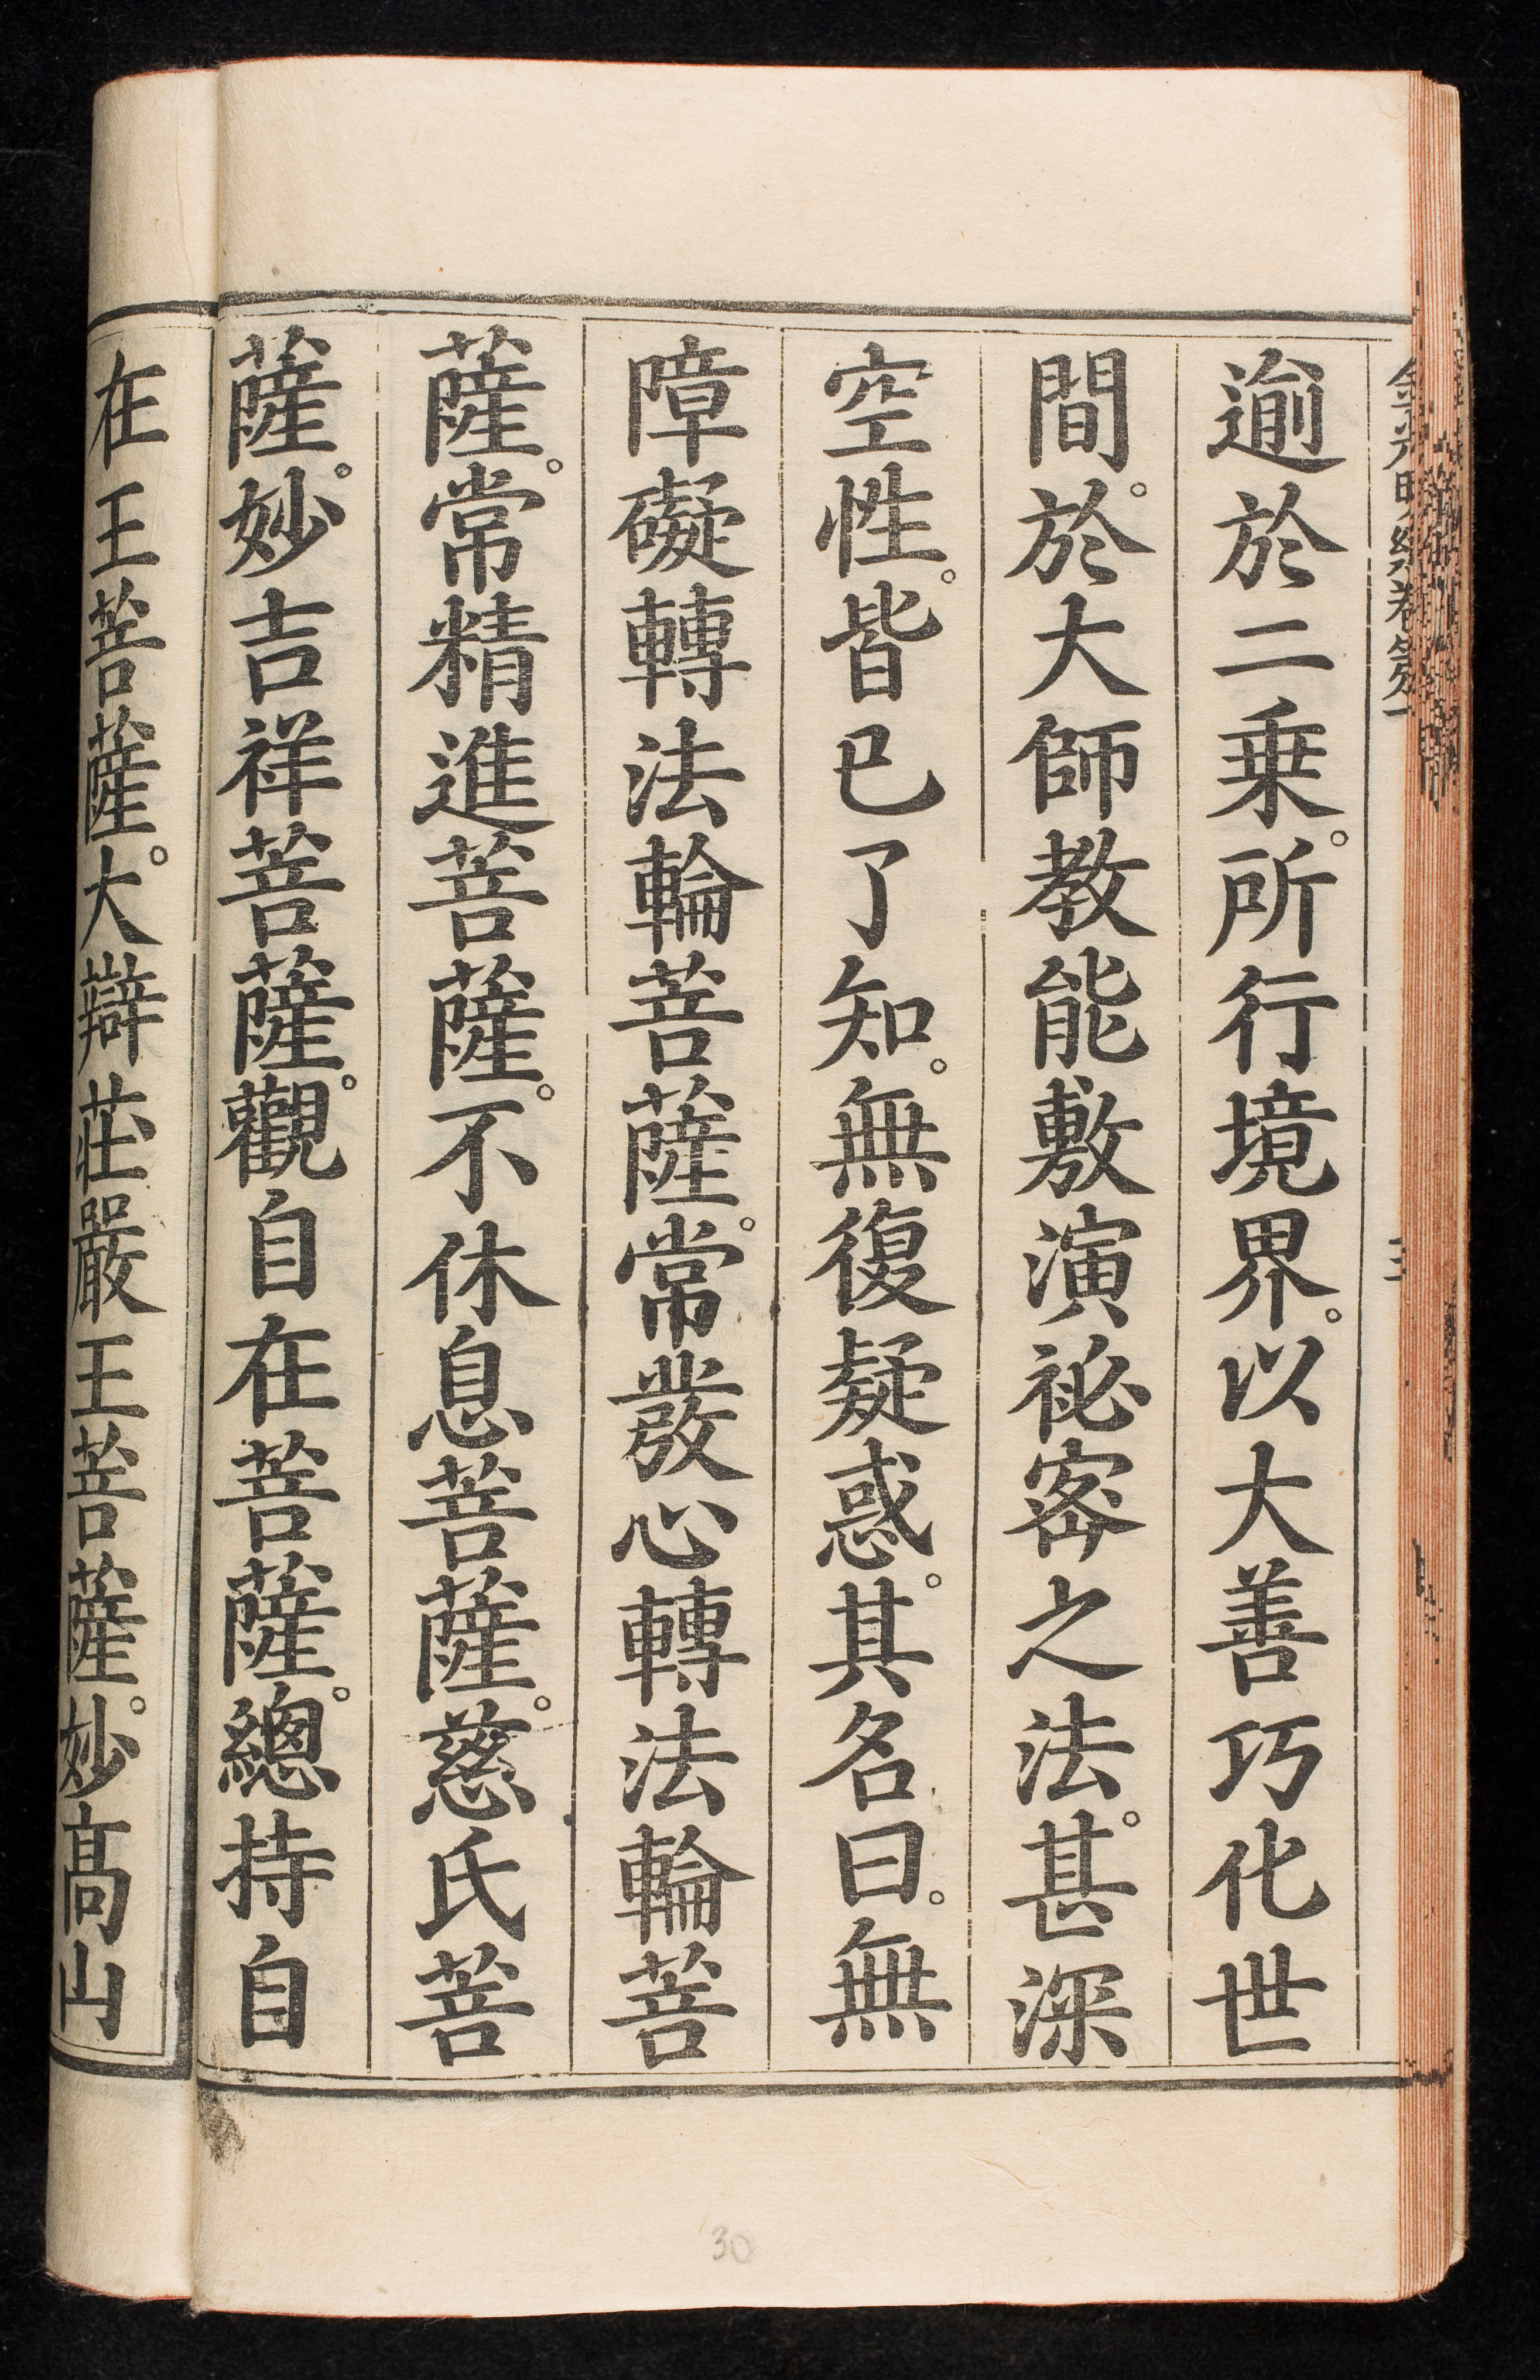 金光明經卷第一
逾於二乗。所行境界。以大善巧化世
間。於大師教能敷演祕密之法。甚深
空性。皆已了知。無復疑惑。其名曰。無
障礙轉法輪菩薩。常發心轉法輪菩
薩。常精進菩薩。不休息菩薩。慈氏菩
薩。妙吉祥菩薩。觀自在菩薩。總持自
在王菩薩。大辯莊嚴王菩薩。妙高山
30